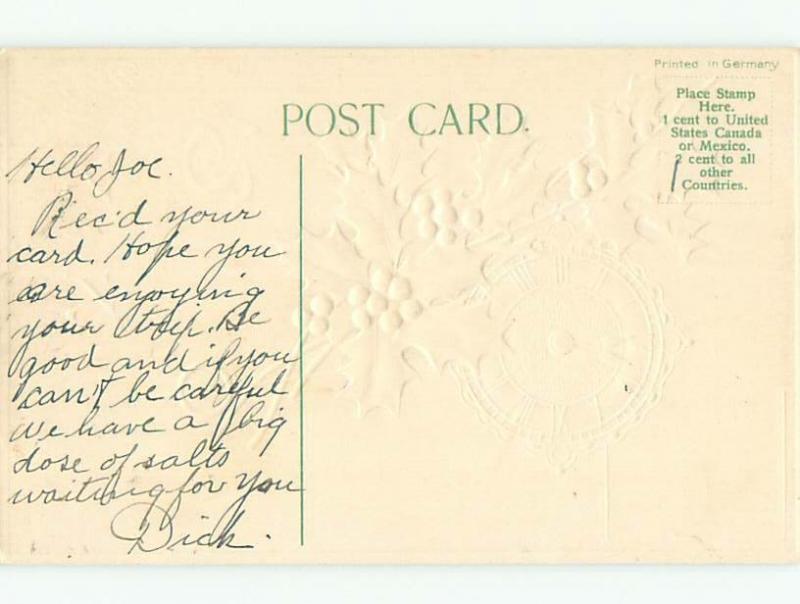 Printed in Germany
Place Stamp
Here.
1 cent to United
States Canada
or Mexico.
2 cent to all
other
Countries.
POST CARD.
Hello Joe.
Rec'd your
card. Hope you
are enjoying
your trip. Be
good and if you
can't be careful
we have a big
dose of salts
waiting for you
Dick.